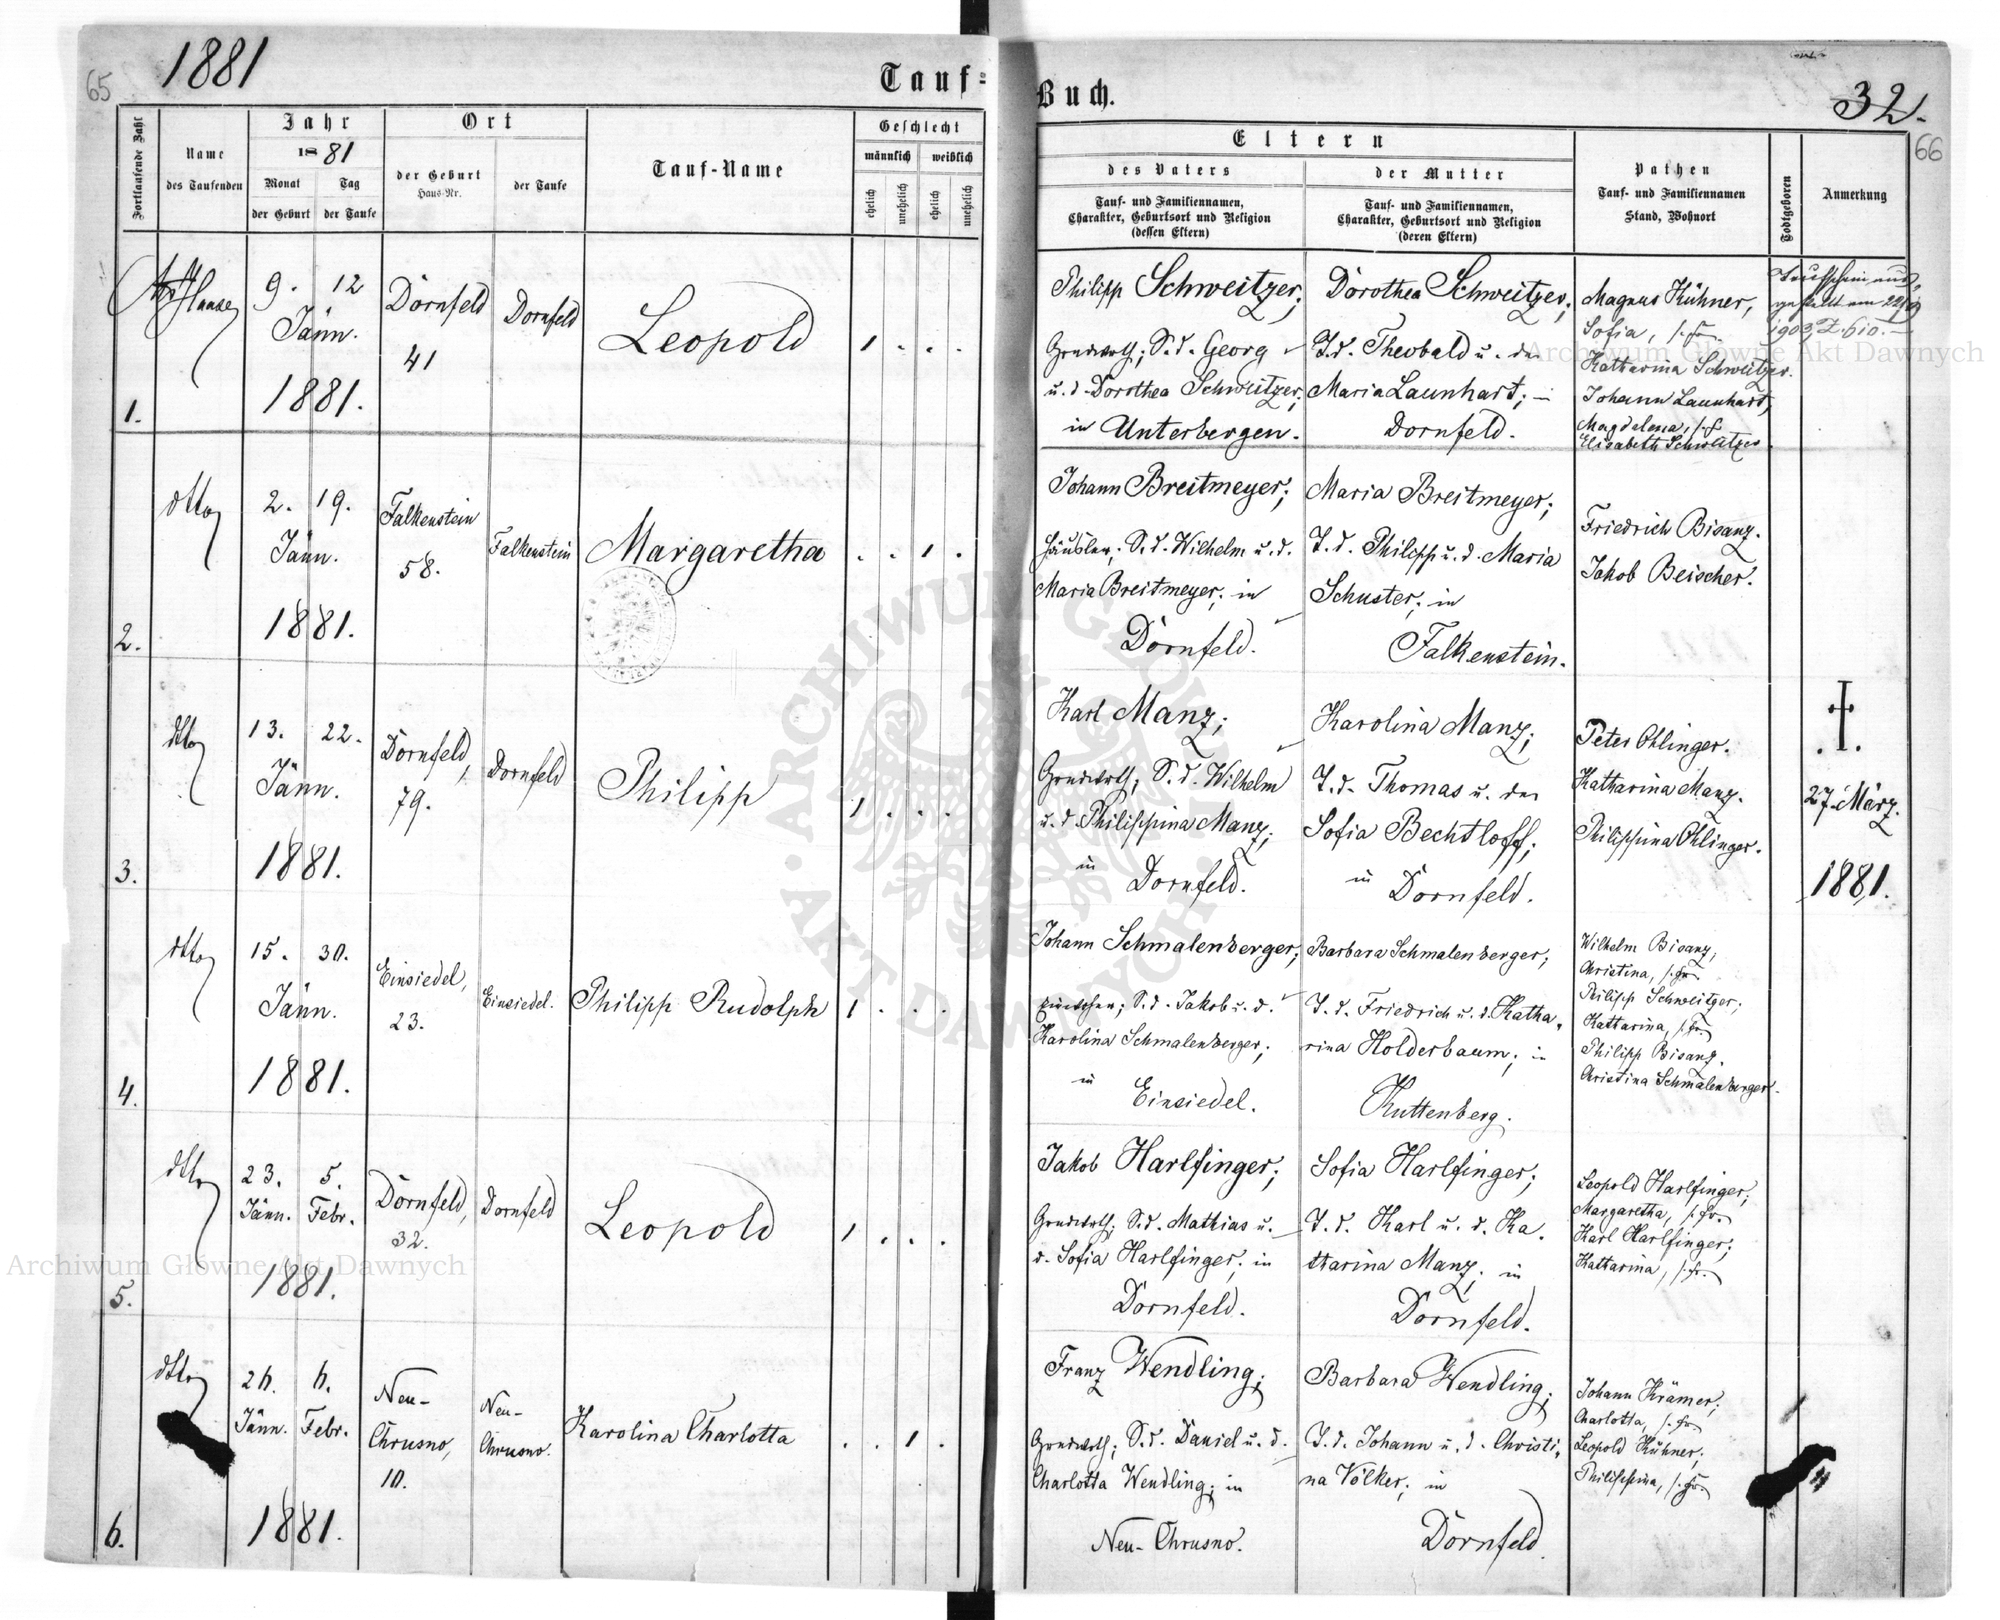 65
1881
Tauf-
Buch.
32.
66
Fortlaufende Zahl
Name
des Taufenden
Jahr
1881
Monat
der Geburt
Tag
der Taufe
Ort
der Geburt
Haus-Nr.
der Taufe
Tauf-Name
Geschlecht
männlich
weiblich
ehelich
unehelich
ehelich
unehelich
Eltern
des Vaters
Tauf- und Familiennamen,
Charakter, Geburtsort und Religion
(dessen Eltern)
der Mutter
Tauf- und Familiennamen,
Charakter, Geburtsort und Religion
(deren Eltern)
Pathen
Tauf- und Familiennamen
Stand, Wohnort
Todtgeboren
Anmerkung
1.
9. 12
Jänn.
1881.
Dornfeld
41
Dornfeld
Leopold
1 . . .
Philipp Schweitzer;
Grundwirth; S. d. Georg
u. d. Dorothea Schweitzer;
in Unterbergen.
Dorothea Schweitzer;
T. d. Theobald u. der
Maria Launhart; in
Dornfeld.
Magnus Kühner,
Sofia, s. Fr.
Katharina Schweitzer.
Johann Launhart,
Magdalena, s. Fr.
Elisabeth Schweitzer.
Taufschein aus-
gestellt am
1903, Z. 610.
2.
dtto
2. 19.
Jänn.
1881.
Falkenstein
58.
Falkenstein
Margaretha
. . 1 .
Johann Breitmeyer;
Häusler; S. d. Wilhelm u. d.
Maria Breitmeyer; in
Dornfeld.
Maria Breitmeyer;
T. d. Philipp u. d. Maria
Schuster; in
Falkenstein.
Friedrich Bisanz.
Jakob Beischer.
3.
dtto
13. 22.
Jänn.
1881.
Dornfeld,
79.
Dornfeld
Philipp
1 . . .
Karl Manz;
Grundwirth; S. d. Wilhelm
u. d. Philippina Manz;
in Dornfeld.
Karolina Manz;
T. d. Thomas u. der
Sofia Bechtloff;
in Dornfeld.
Peter Ohlinger.
Katharina Manz.
Philippina Ohlinger.
27. März.
1881.
4.
dtto
15. 30.
Jänn.
1881.
Einsiedel,
23.
Einsiedel.
Philipp Rudolph
1 . . .
Johann Schmalenberger;
S. d. Jakob u. d.
Karolina Schmalenberger;
in Einsiedel.
Barbara Schmalenberger;
T. d. Friedrich u. d. Katha-
rina Holderbaum; in
Kuttenberg.
Wilhelm Bisanz,
Christina, s. Fr.
Philipp Schweitzer;
Katharina, s. Fr.
Philipp Bisanz.
Christina Schmalenberger.
5.
dtto
23. 5.
Jänn. Febr.
1881.
Dornfeld,
32.
Dornfeld
Leopold
1 . . .
Jakob Harlfinger;
Grundwirth; S. d. Mathias u.
d. Sofia Harlfinger; in
Dornfeld.
Sofia Harlfinger;
T. d. Karl u. d. Ka-
tharina Manz; in
Dornfeld.
Leopold Harlfinger;
Margaretha, s. Fr.
Karl Harlfinger;
Katharina, s. Fr.
6.
dtto
26. 6.
Jänn. Febr.
1881.
Neu-
Chrusno,
10.
Neu-
Chrusno.
Karolina Charlotta
. . 1 .
Franz Wendling;
Grundwirth; S. d. Daniel u. d.
Charlotta Wendling; in
Neu-Chrusno.
Barbara Wendling;
T. d. Johann u. d. Christi-
na Völker; in
Dornfeld.
Johann Krämer;
Charlotta, s. Fr.
Leopold Kühner;
Philippina, s. Fr.
Archiwum Główne Akt Dawnych
Archiwum Główne Akt Dawnych
ARCHIWUM GŁÓWNE AKT DAWNYCH